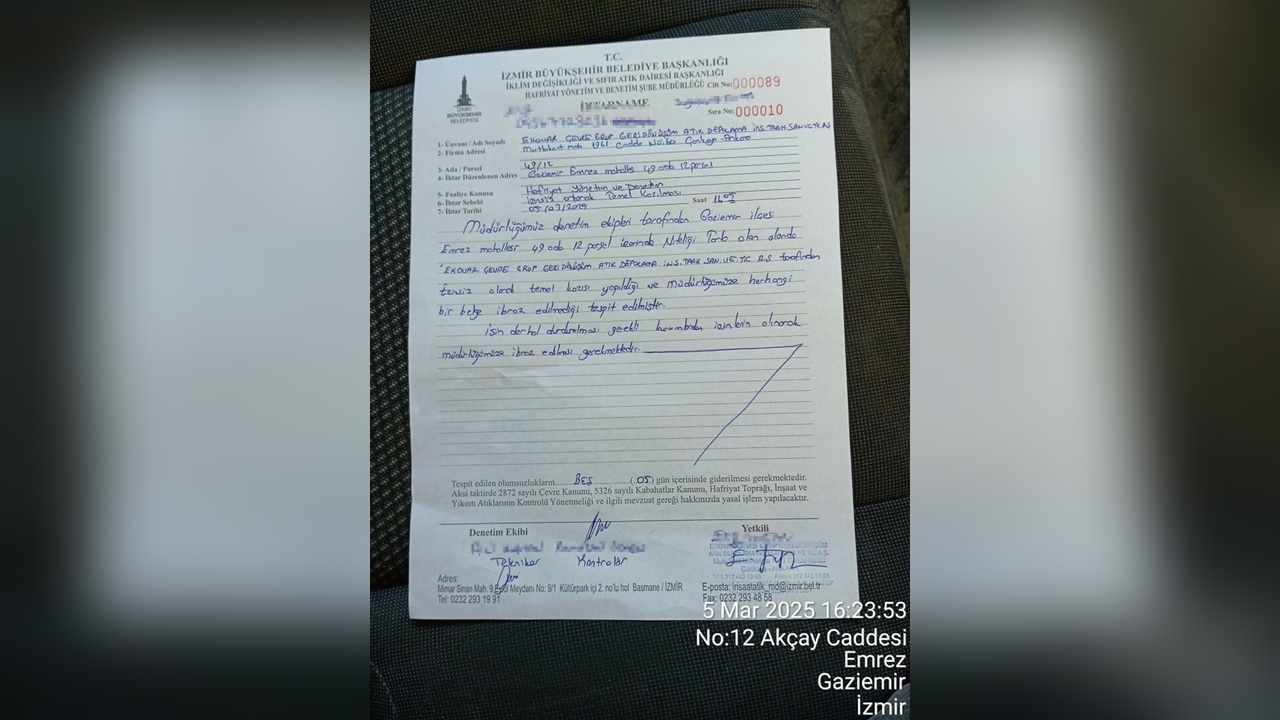 T.C.
İZMİR BÜYÜKŞEHİR BELEDİYE BAŞKANLIĞI
İKLİM DEĞİŞİKLİĞİ VE SIFIR ATIK DAİRESİ BAŞKANLIĞI
HAFRİYAT YÖNETİM VE DENETİM ŞUBE MÜDÜRLÜĞÜ Cilt No: 000089
İHTARNAME
Sıra No: 000010
İZMİR
BÜYÜKŞEHİR
BELEDİYESİ
1- Ünvanı / Adı Soyadı EKOVAR ÇEVRE GRUP GERİDÖNÜŞÜM ATIK DEPOLAMA İNS.TAAH.SAN.VE.TİC
2- Firma Adresi 1961 Cadde Çankaya-Ankara
3- Ada / Parsel 49/12
4- İhtar Düzenlenen Adres Gaziemir Emrez mahallesi 49 ada 12 parsel
5- Faaliye Konusu Hafriyat Yönetim ve Denetim
6- İhtar Sebebi İzinsiz olarak Temel Kazılması Saat
7- İhtar Tarihi 05/03/2025
Müdürlüğümüz denetim ekipleri tarafından Gaziemir ilçesi
Emrez mahallesi 49 ada 12 parsel üzerinde Niteliği Tarla olan alanda
"EKOVAR ÇEVRE GRUP GERİDÖNÜŞÜM ATIK DEPOLAMA İNS.TAAH.SAN.VE.TİC A.Ş tarafından
İzinsiz olarak temel kazısı yapıldığı ve müdürlüğümüze herhangi
bir belge ibraz edilmediği tespit edilmiştir.
İşin derhal durdurulması gerekli kurumlardan izinlerin alınarak
müdürlüğümüze ibraz edilmesi gerekmektedir.
Tespit edilen olumsuzlukların......BEŞ......(.05) gün içerisinde giderilmesi gerekmektedir.
Aksi taktirde 2872 sayılı Çevre Kanunu, 5326 sayılı Kabahatlar Kanunu, Hafriyat Toprağı, İnşaat ve
Yıkıntı Atıklarının Kontrolü Yönetmeliği ve ilgili mevzuat gereği hakkınızda yasal işlem yapılacaktır.
Denetim Ekibi Yetkili
Tekniker Kontrolör
Adres:
Mimar Sinan Mah. 9 Eylül Meydanı No: 9/1 Kültürpark içi 2. no'lu hol Basmane / İZMİR
Tel: 0232 293 19 91
E-posta: insaatatik_md@izmir.bel.tr
Fax: 0232 293 48 58
5 Mar 2025 16:23:53
No:12 Akçay Caddesi
Emrez
Gaziemir
İzmir